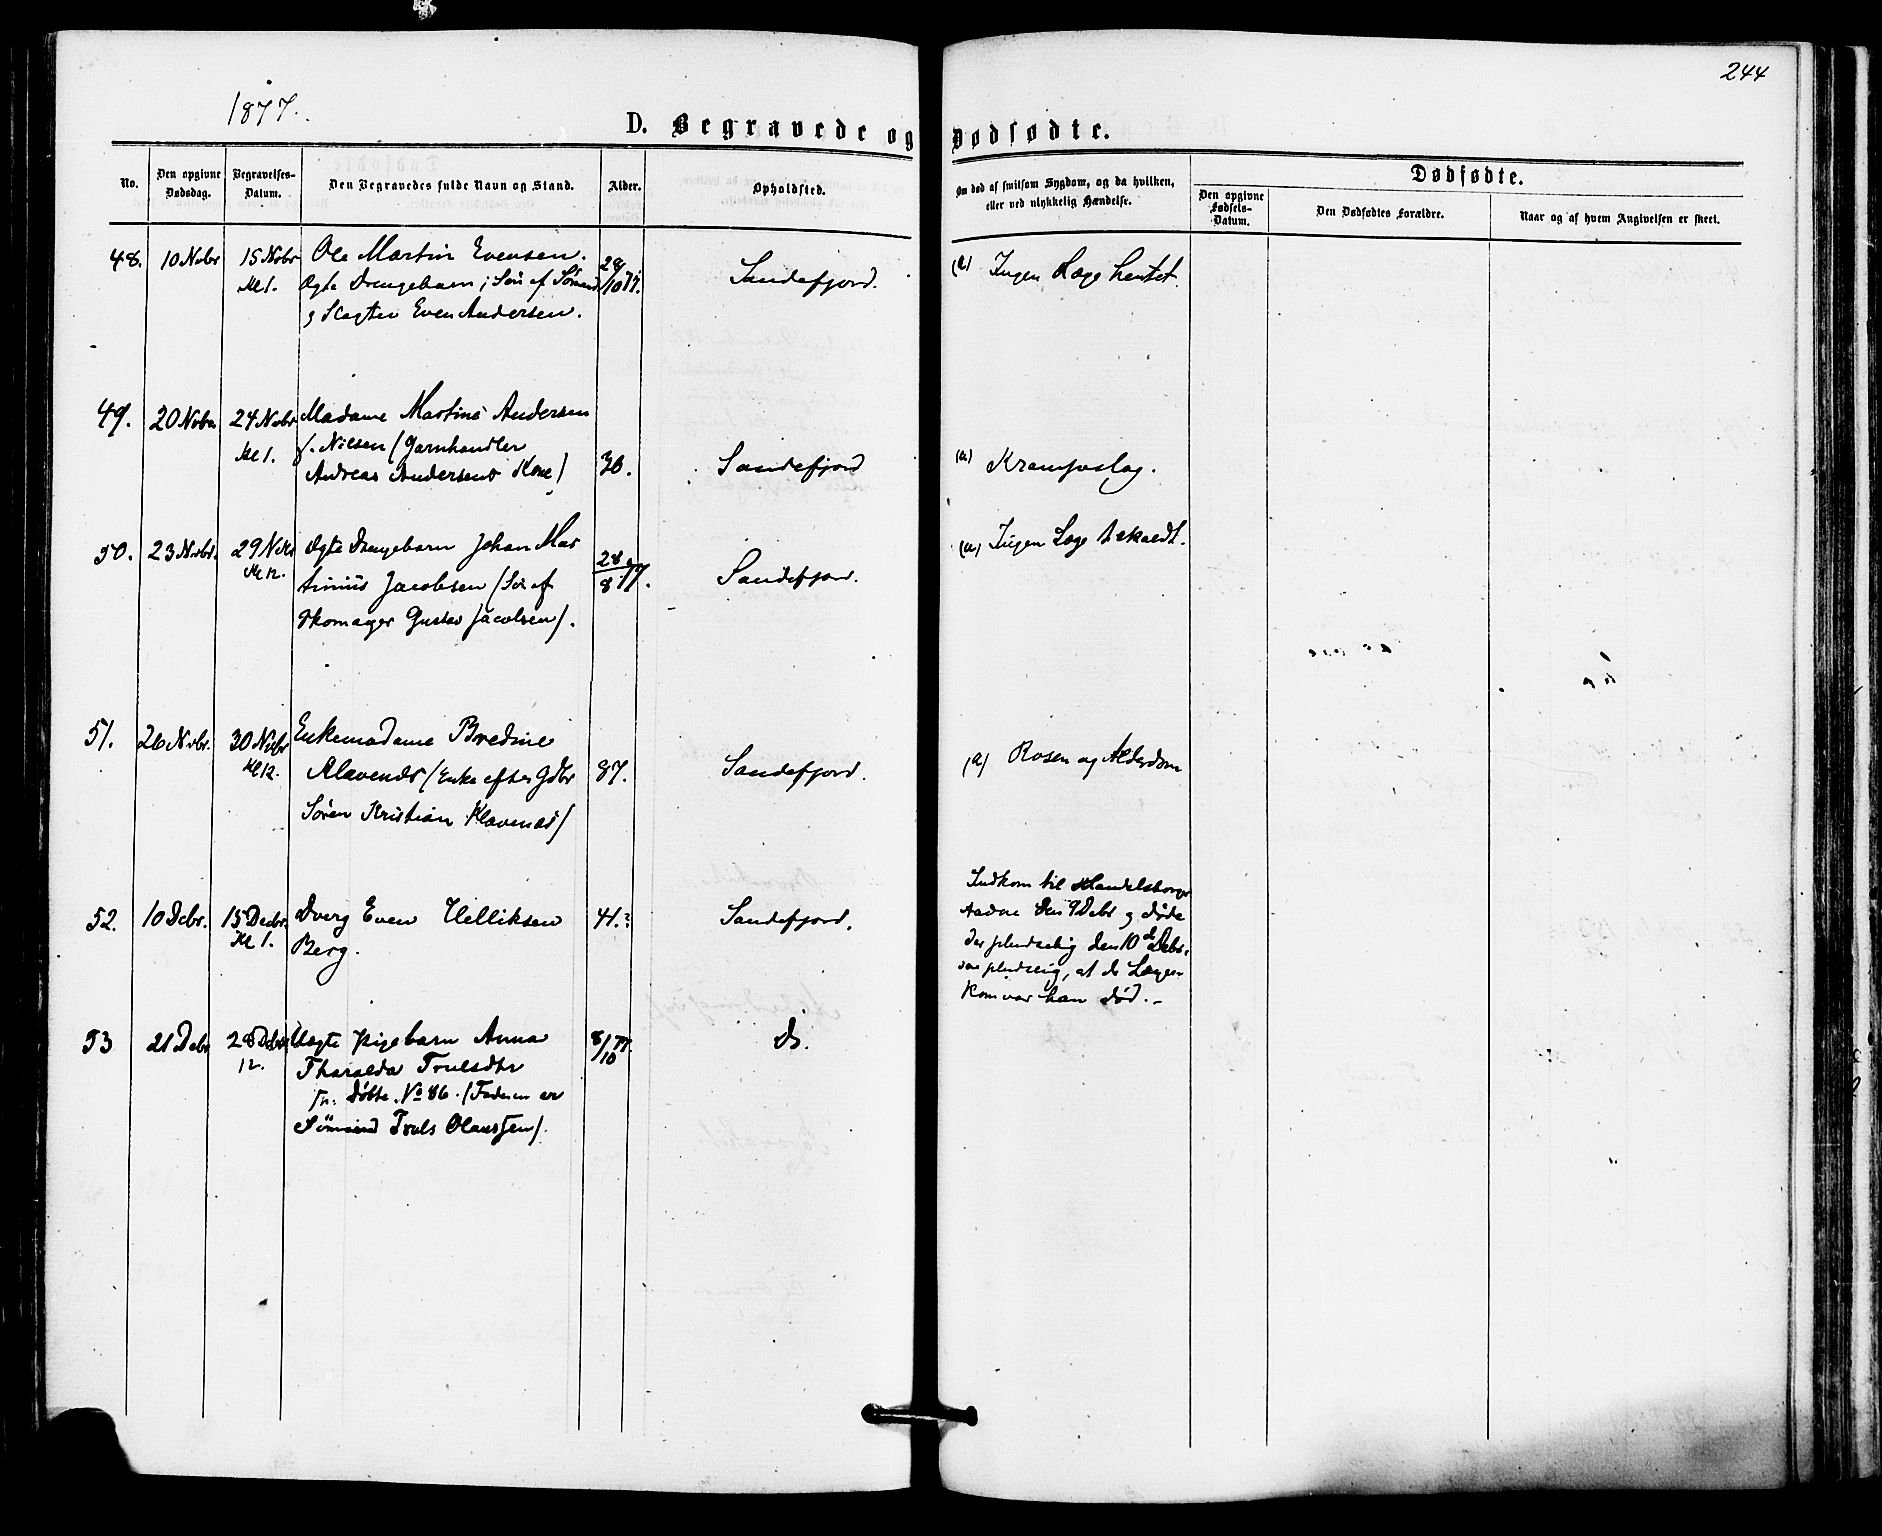 244
1877.
D. Begravede og Dødfødte.
No.
Den opgivne Dødsdag.
Begravelses-Datum.
Den Begravedes fulde Navn og Stand.
Alder.
Opholdsted.
Om død af smitsom Sygdom, og da hvilken,
eller ved ulykkelig Hændelse.
Dødfødte.
Den opgivne Fødsels-Datum.
Den Dødfødtes Forældre.
Naar og af hvem Angivelsen er skeet.
48. 10 Novbr 15 Novbr Ole Martin Evensen. 28/10 77. Sandefjord. (a) Ingen Læge hentet.
Kl 1. Ægte Drengebarn; Søn af Sømand
og Slagter Even Andersen.
49. 20 Novbr 24 Novbr Madame Martine Andersen
Kl 1. f. Nielsen (Garnhandler
Andreas Andersens Kone) 30. Sandefjord (a) Krampeslag.
50. 23 Novbr. 29 Novbr Ægte Drengebarn Johan Mar 28/8 77. Sandefjord. (a) Ingen Læge tilkaldt.
Kl 12. tinius Jacobsen (Søn af
Skomager Gustav Jacobsen).
51. 26 Novbr. 30 Novbr Enkemadame Bredine
Kl 12. Klavenes (Enke efter Gdbr 87. Sandefjord. (a) Rosen og Alderdom
Søren Kristian Klavenes)
52. 10 Decbr. 15 Decbr. Dverg Even Helliksen 41.? Sandefjord.
Kl 1. Berg.
Indkom til Handelsborger
den 9 Debr og døde
der pludselig den 10de Debr.
saa pludselig, at da Lægen
kom var han død. -
53 21 Debr 28 Debr. Uægte Pigebarn Anna 8/10 77. Do.
12. Tharalda Trulsdtr
Døbte. No 86. (Faderen er
Sømand Truls Olaussen).